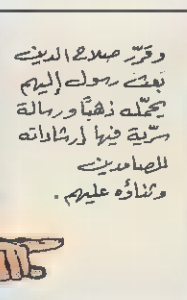 وقرّر صلاح الدين
بَعث رسول إليهم
يحمّله ذهبًا ورسالة
سرّية فيها إرشاداته
للصامدين
وثناؤه عليهم.